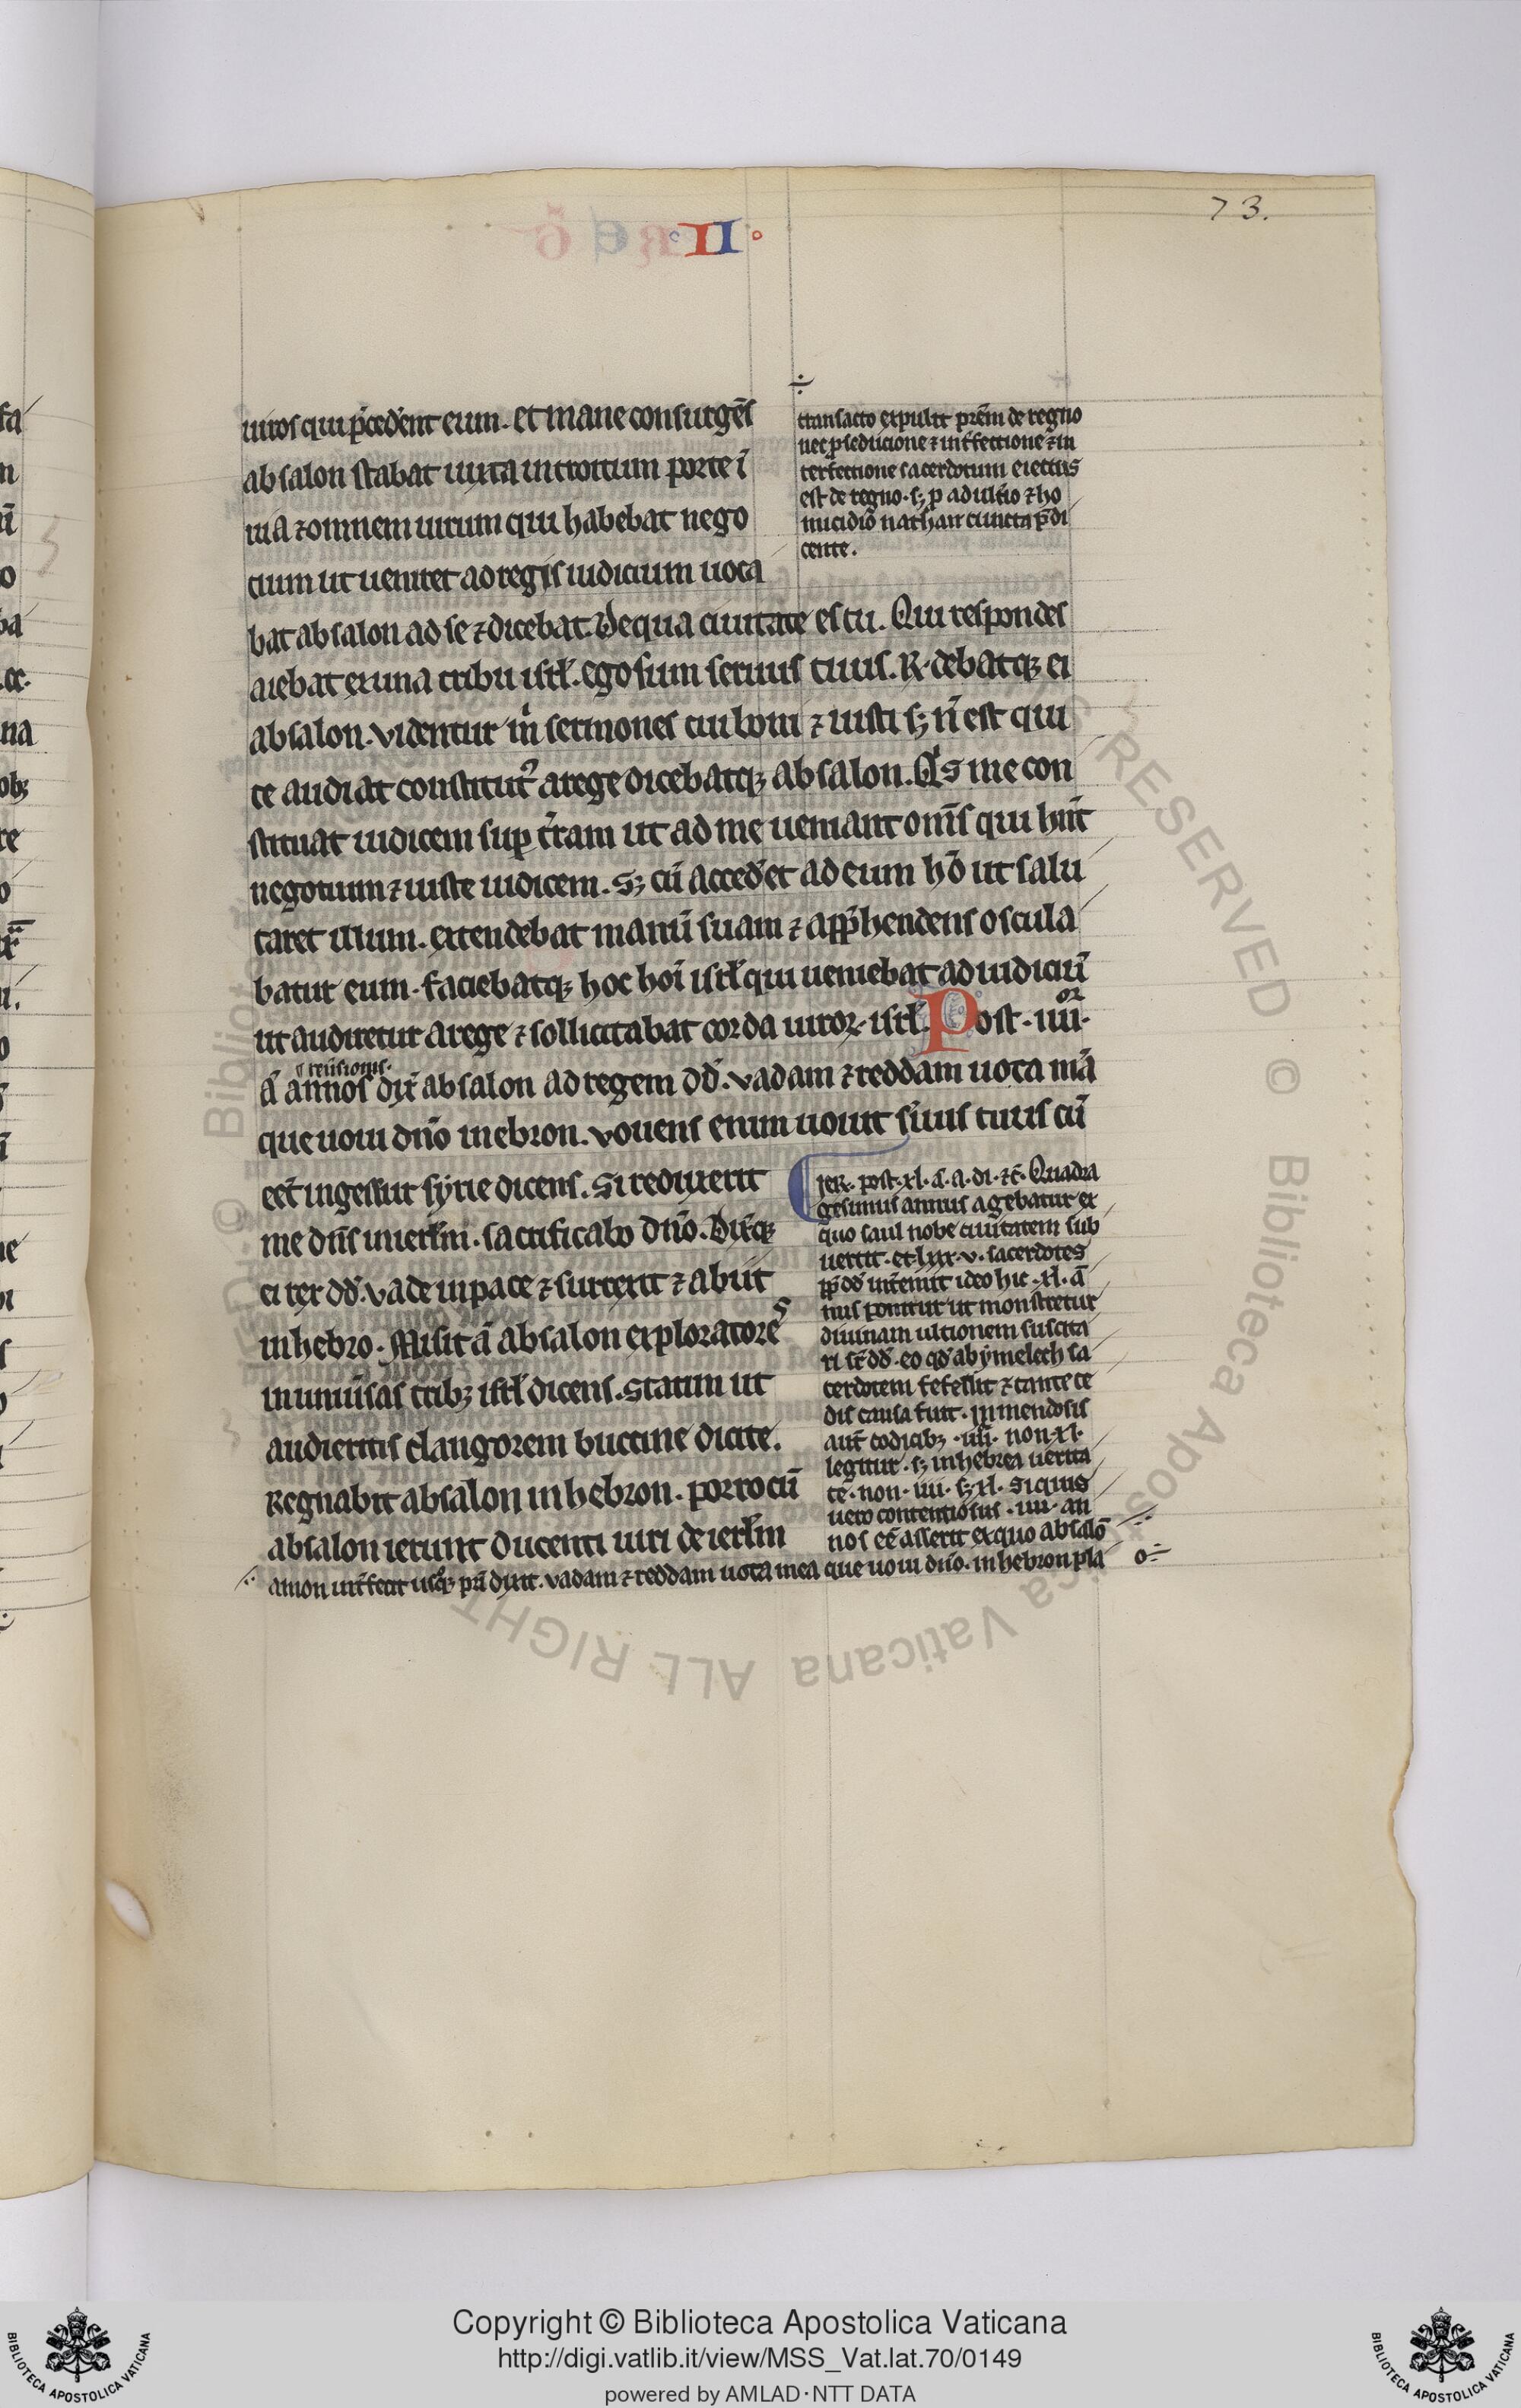 73.
· II ·
uiros qui p̄ced̄ent eum. et mane consurgēs
absalon stabat iuxta introitum porte ī
ria ⁊ omnem uirum qui habebat nego
cium ut ueniret ad regis iudicium uoca
bat absalon ad se ⁊ dicebat. De qua ciuitate es tu. Qui respondēs
aiebat ex una tribu isrł. ego sum seruus tuus. R·debatqꝫ ei
absalon. videntur m̍ sermones tui boni ⁊ iusti sꝫ n̄ est qui
te audiat constitut᷒ a rege dicebatqꝫ absalon. Q̍s me con
stituat iudicem sup t̄ram ut ad me ueniant om̄s qui hn̄t
negotium ⁊ iuste iudicem. Sꝫ cū acced̄et ad eum hō ut salu
taret illum. extendebat manū suam ⁊ app̄hendens oscula
batur eum. faciebatqꝫ hoc hoī isrł qui ueniebat ad iudiciū
ut audiretur a rege ⁊ sollicitabat corda uiroꝝ isrł. Post · iiii ᵒʳ ·
reūsionis·
ā annos dix̄ absalon ad regem dd̄. vadam ⁊ reddam uota mā
que uoui dn̄o in ebron. vouens enim uouit s̄uus tuus cū
eēt in gessur syrie dicens. Si redixerit
me dn̄s in ierłm. sacrificabo dn̄o. Dix̄qꝫ
ei rex dd̄. vade in pace ⁊ surrexit ⁊ abiit
in hebro. Misit ā absalon exploratores
in uniūsas tribꝫ isrł dicens. Statim ut
audieritis clangorem buccine dicite.
Regnabit absalon in hebron. porro cū
absalon ierunt ducenti uiri de ierłm
÷
transacto expulit prēm de regno
nec p seducione ⁊ int̄fectione ⁊ in
terfectione sacerdotum eiectus
est de regno. sꝫ p adult̄io ⁊ ho
micidio nathan cuncta p̄di
cente.
Jer. post. xl. a. a. di. ⁊c̄. Quadra
gesimus annus agebatur ex
quo saul nobe ciuitatem sub
uertit. et lxx.v. sacerdotes
pp̄ dd̄ int̄emit ideo hic .xl. ā
nus ponitur ut monstretur
diuinam ultionem suscita
ri sr̄ dd̄. eo qd̄ abymelech sa
cerdotem fefellit ⁊ tante ce
dis causa fuit. In mendosis
aut̄ codicibꝫ · iiii · non .xl.
legitur. sꝫ in hebrea uerita
te. non · iiii · sꝫ .xl. Si quis
uero contentiosus · iiii · an
nos eē asserit ex quo absalō
amon int̄fecit usqꝫ p̄ri dixit. vadam ⁊ reddam uota mea que uoui dn̄o. in hebron pla
Copyright © Biblioteca Apostolica Vaticana
http://digi.vatlib.it/view/MSS_Vat.lat.70/0149
powered by AMLAD·NTT DATA
BIBLIOTECA APOSTOLICA VATICANA
BIBLIOTECA APOSTOLICA VATICANA